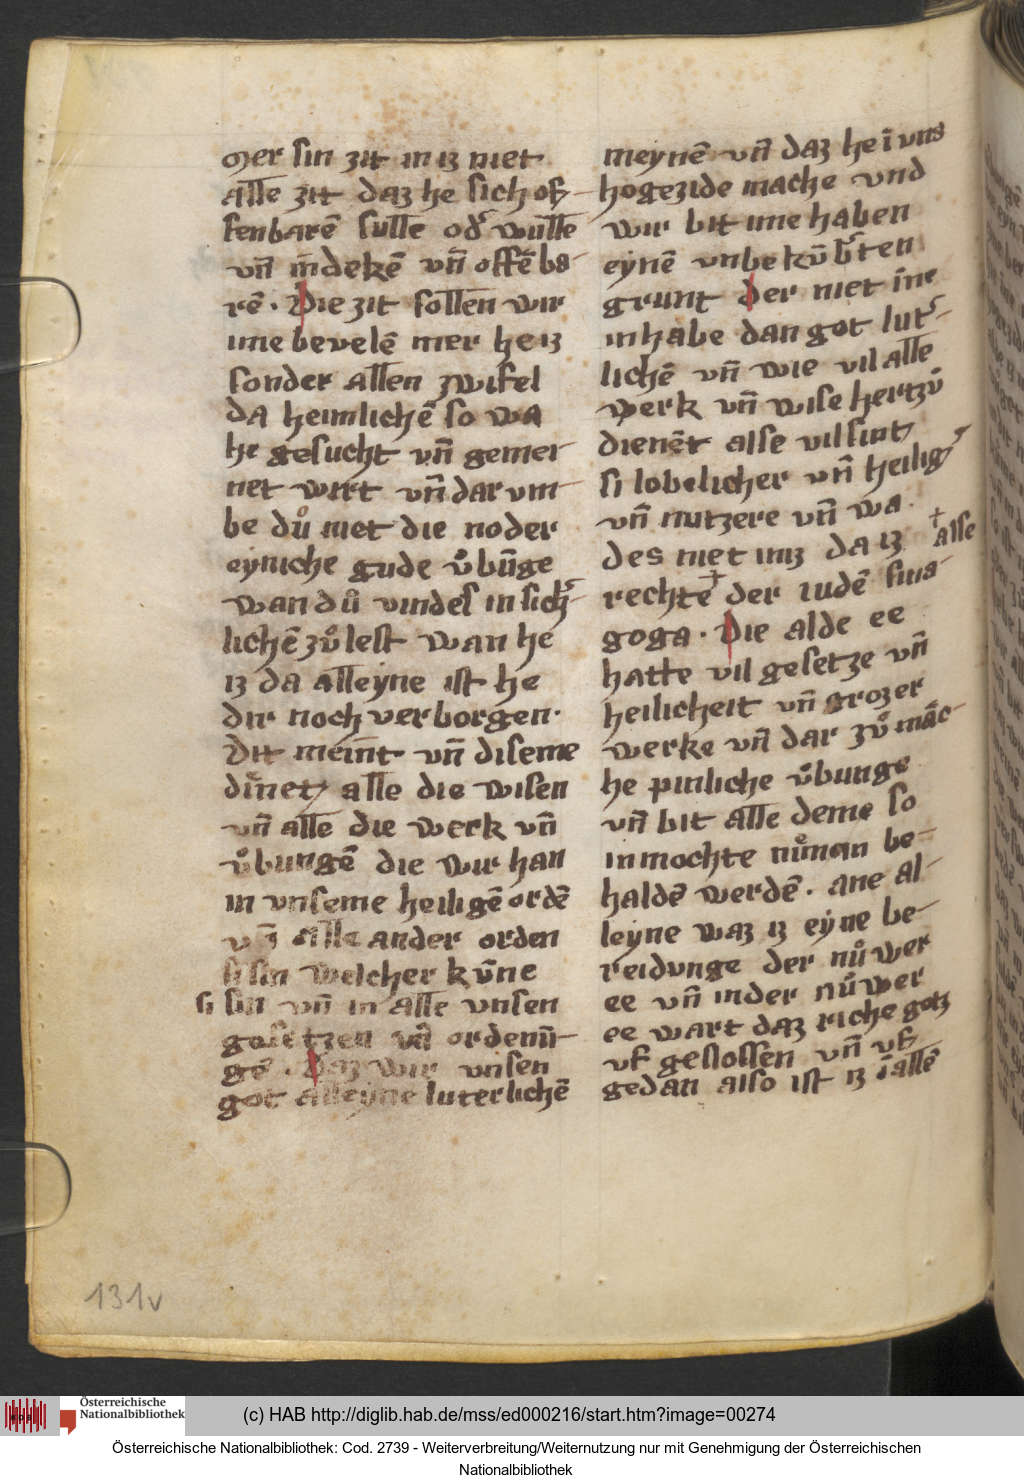 mer sin zit in iz niet
alle zit daz he sich of-
fenbarē sulle odˀ wulle
vn̄ in̄dekē vn̄ offēba-
rē. Die zit sollen wir
ime bevelē mer he iz
sonder allen zwifel
da heimlichē so wa
he gesucht vn̄ gemei-
net wirt vn̄ dar vm-
be dů niet die noder
eyniche gude v̊bu̅ge
wan dů vindes in sichˀ-
lichē zv̊lest wan he
iz da alleyne ist he
dir noch verborgen.
Dit meint vn̄ diseme
dīnet alle die wisen
vn̄ alle die werk vn̄
v̊bungē die wir han
in vnseme heiligē ordē
vn̄ alle ander orden
si sin welcher kūne
si sin vn̄ in alle vnsen
gesetzen vn̄ ordenū-
gē. Daz wir vnsen
got alleyne luterlichē
meynē vn̄ daz he ī vns
hogezide mache vnd
wir bit ime haben
eynē vnbekūbˀten
grunt der niet īne
inhabe dan got lutˀ-
lichē vn̄ wie vil alle
werk vn̄ wise hertzū
dienēt alse vil sint
si lobelicher vn̄ heilig
vn̄ nutzere vn̄ wa
des niet iniz da iz alse
rechte der iudē sina-
goga. Die alde ee
hatte vil gesetze vn̄
heilicheit vn̄ grozer
werke vn̄ dar zv̊ māc-
he pinliche v̊bunge
vn̄ bit alle deme so
inmochte nůman be-
haldē werdē. ane al-
leyne waz iz eyne be-
reidunge der nůwer
ee vn̄ inder nůwer
ee wart daz riche gotz
vf geslossen vn̄ vf
gedan also ist iz ī allē
131v
Österreichische
Nationalbibliothek
(c) HAB http://diglib.hab.de/mss/ed000216/start.htm?image=00274
Österreichische Nationalbibliothek: Cod. 2739 - Weiterverbreitung/Weiternutzung nur mit Genehmigung der Österreichischen
Nationalbibliothek